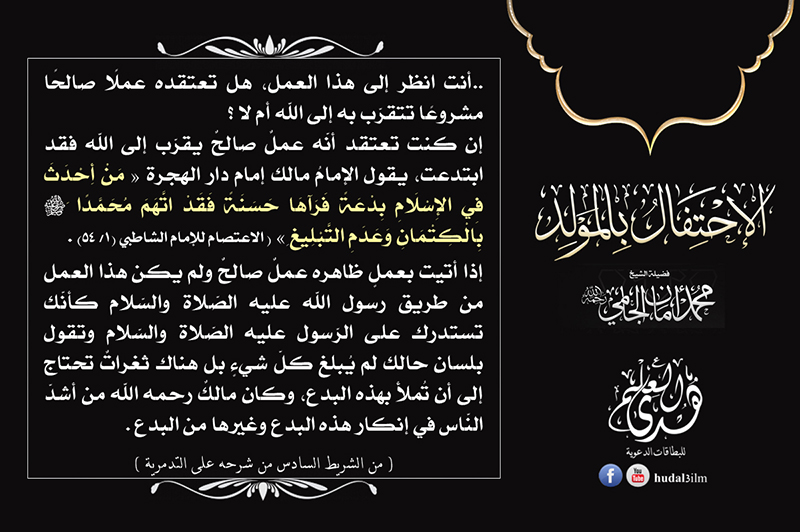 الإحْتِفَالُ بِالمَوْلِدِ
فضيلة الشيخ
محمد أمان الجامي رحمه الله
..أنت انظر إلى هذا العمل، هل تعتقده عملًا صالحًا
مشروعًا تتقرّب به إلى الله أم لا ؟
إن كنت تعتقد أنّه عملٌ صالحٌ يقرّب إلى الله فقد
ابتدعت، يقول الإمامُ مالك إمام دار الهجرة « مَنْ أحْدَثَ
فِي الإسْلَامِ بِدْعَةً فَرَآهَا حَسَنَةً فَقَدْ اتَّهَمَ مُحَمَّدًا ﷺ
بِالكَتْمَانِ وَعَدَمِ التَّبْلِيغ » ( الاعتصام للإمام الشاطبي (١/ ٥٤) .
إذا أتيت بعملٍ ظاهره عملٌ صالحٌ ولم يكن هذا العمل
من طريق رسول الله عليه الصّلاة والسّلام كأنّك
تستدرك على الرّسول عليه الصّلاة والسّلام وتقول
بلسان حالك لم يُبلغ كلّ شيءٍ بل هناك ثغراتٌ تحتاج
إلى أن تُملأ بهذه البدع، وكان مالكٌ رحمه الله من أشدّ
النّاس في إنكار هذه البدع وغيرها من البدع .
( من الشريط السادس من شرحه على التّدمرية )
هُدى العلم
للبطاقات الدعوية
f You Tube hudal3ilm